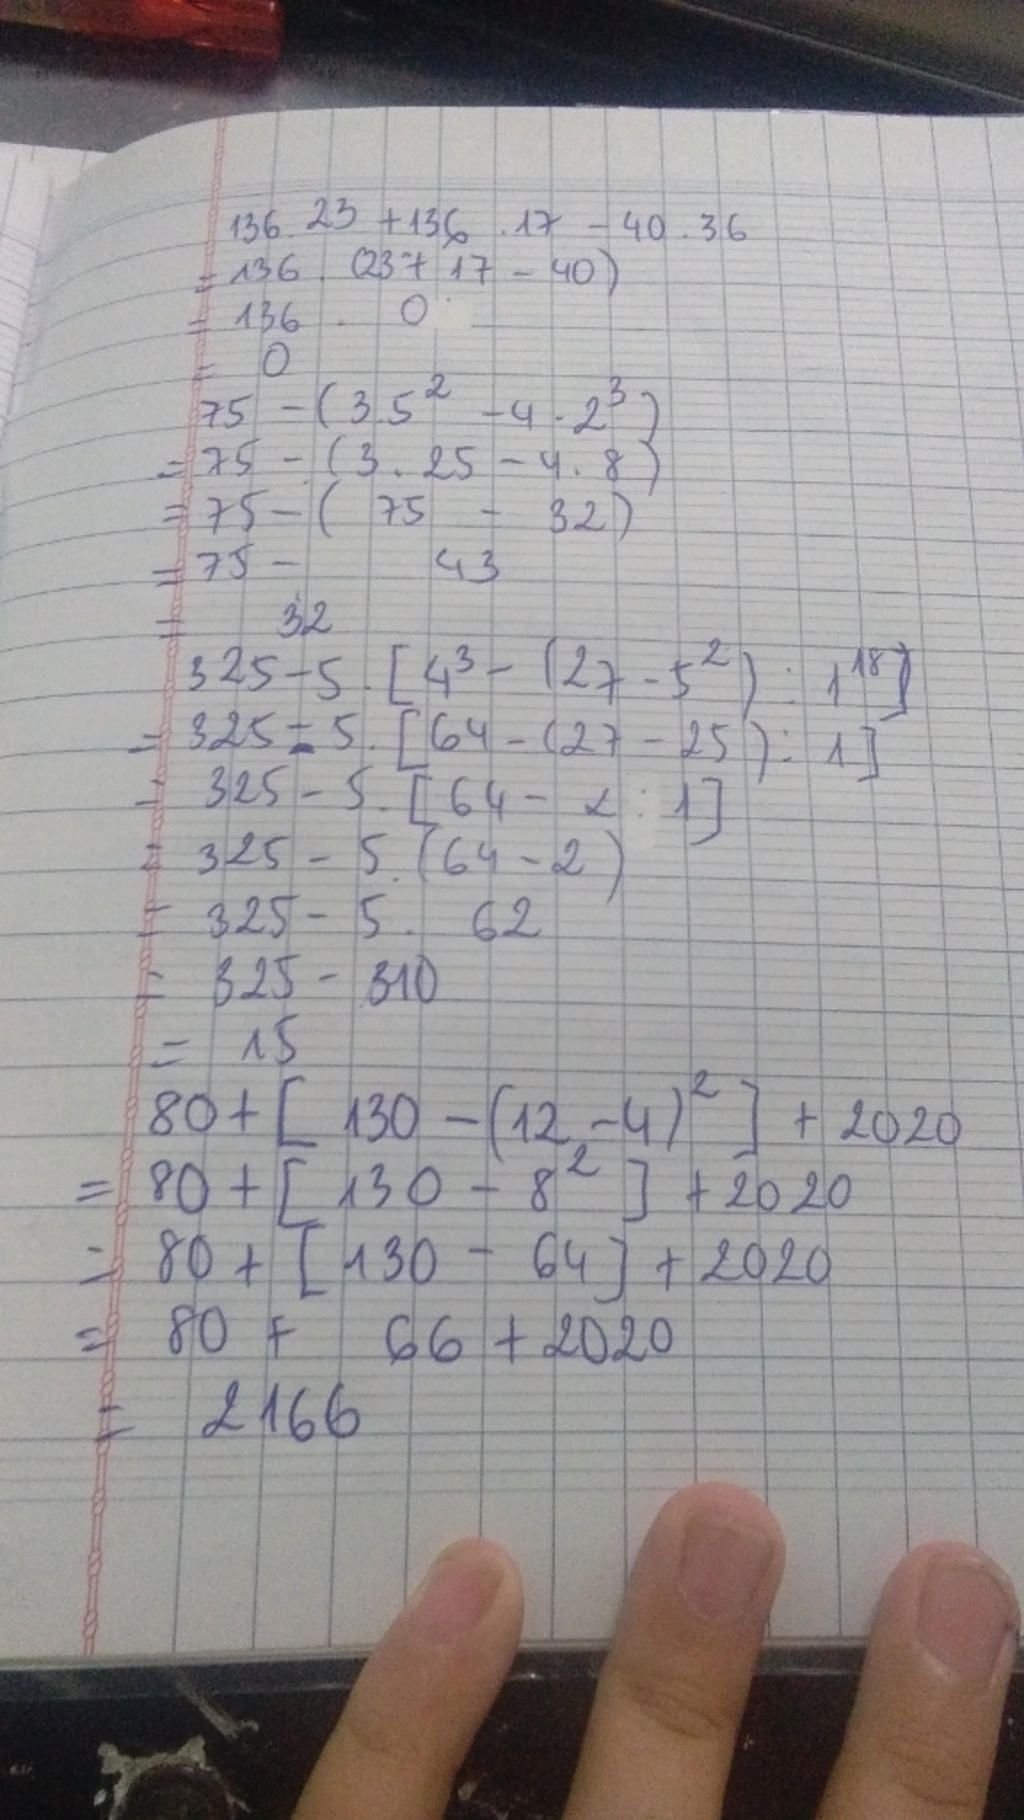 136.23 + 136.17 - 40.36
= 136. (23 + 17 - 40)
= 136. 0
= 0
75 - (3.5² - 4.2³)
= 75 - (3.25 - 4.8)
= 75 - (75 - 32)
= 75 - 43
= 32
325 - 5.[4³ - (27 - 5²) : 1¹⁸]
= 325 - 5.[64 - (27 - 25) : 1]
= 325 - 5.[64 - 2 : 1]
= 325 - 5.(64 - 2)
= 325 - 5. 62
= 325 - 310
= 15
80 + [130 - (12 - 4)²] + 2020
= 80 + [130 - 8²] + 2020
= 80 + [130 - 64] + 2020
= 80 + 66 + 2020
= 2166